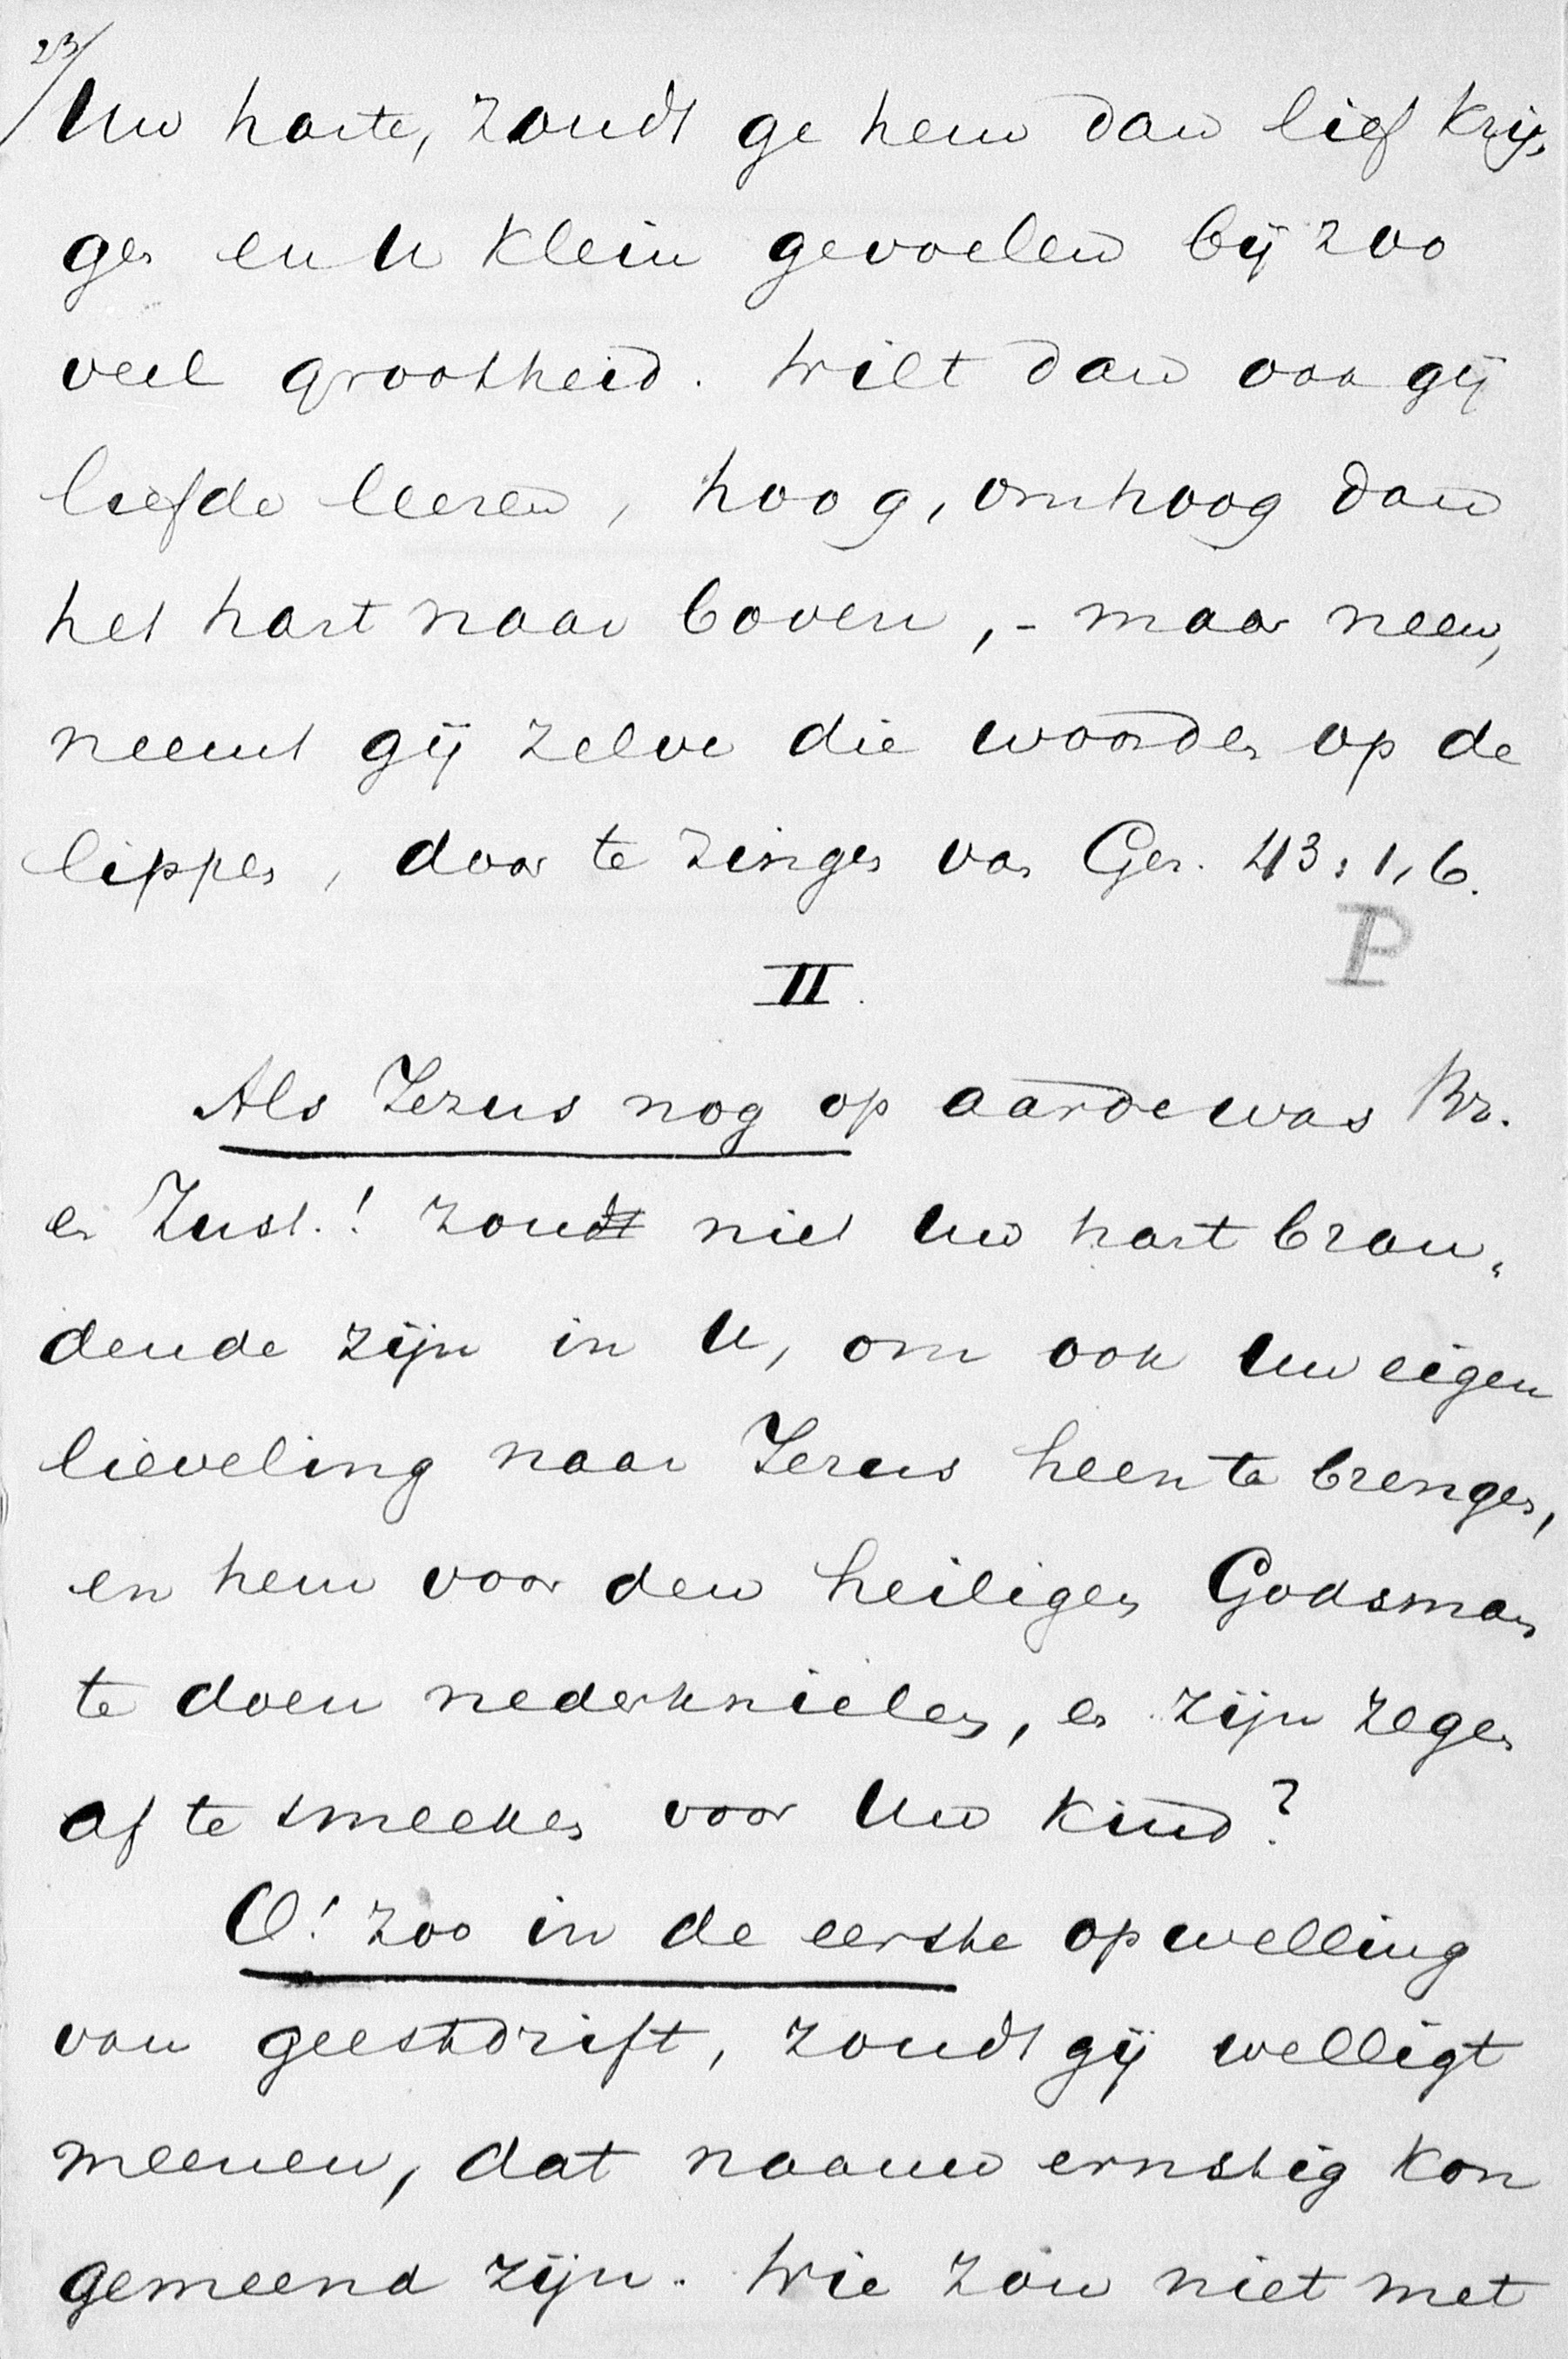 23/
Uw harte, zoudt ge hem dan lief krij-
gen en U klein gevoelen bij zoo
veel grootheid. Wilt dan ook gij
liefde leeren, hoog, omhoog dan
het hart naar boven, - maar neen,
neemt gij zelve die woorden op de
lippen, door te zingen van Gez. 43 : 1, 6.
P
II.
Als Jezus nog op aarde was Br.
en Zust.! zoudt niet Uw hart bran-
dende zijn in U, om ook Uw eigen
lieveling naar Jezus heen te brengen,
en hem voor den heiligen Godsman
te doen nederknielen, en zijn zegen
af te smeeken voor Uw kind?
O! zoo in de eerste opwelling
van geestdrift, zoudt gij welligt
meenen, dat naauw ernstig kon
gemeend zijn. Wie zou niet met